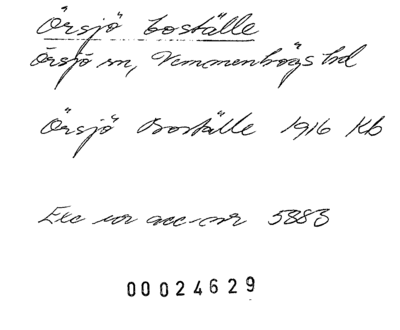 Örsjö boställe
Örsjö sn, Vemmenhögs hd
Örsjö Boställe 1916 Kb
Exc ur acc-nr 5883
00024629